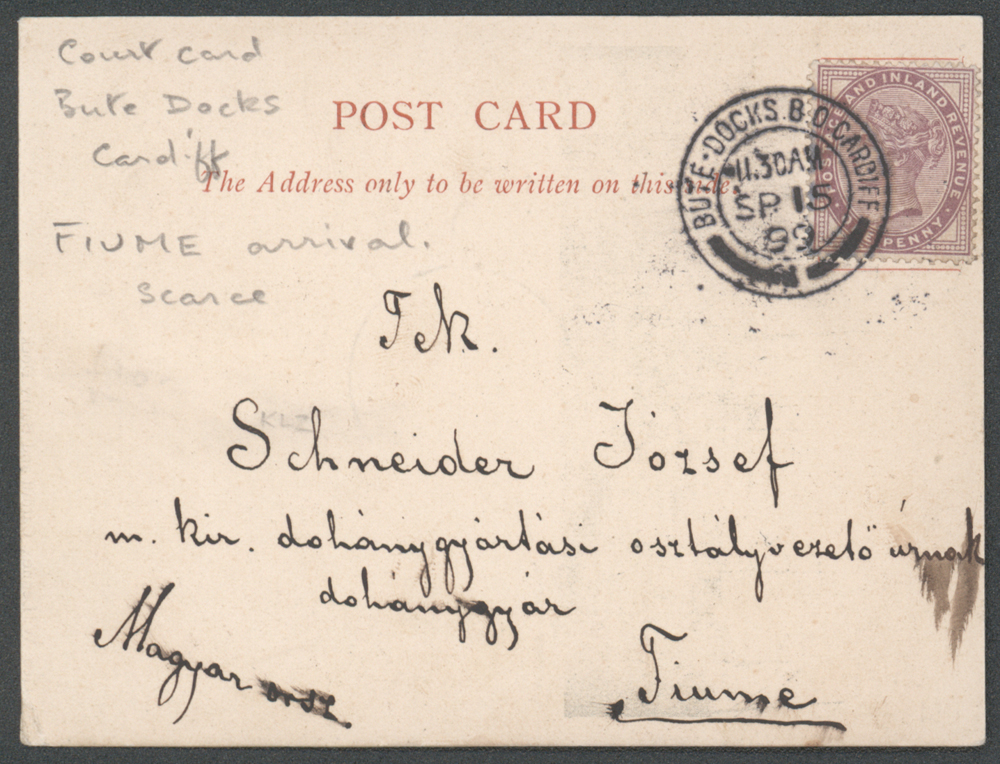 Court card
Bute Docks
Cardiff
POST CARD
The Address only to be written on this side.
FIUME arrival.
Scarce
BUTE·DOCKS.B.O.CARDIFF
11.30AM
SP 15
99
POSTAGE AND INLAND REVENUE
PENNY
Tek.
KLZ
Schneider József
m. kir. dohánygyártási osztályvezető úrnak
dohánygyár
Magyar orsz.
Fiume